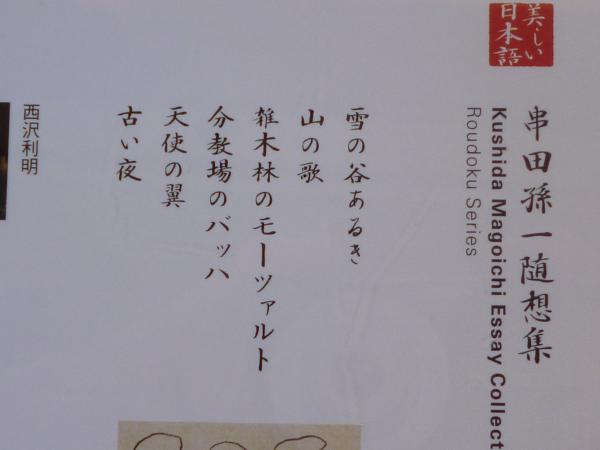 美しい
日本語
串田孫一随想集
Kushida Magoichi Essay Collect
Roudoku Series
雪の谷あるき
山の歌
雑木林のモーツァルト
分教場のバッハ
天使の翼
古い夜
西沢利明